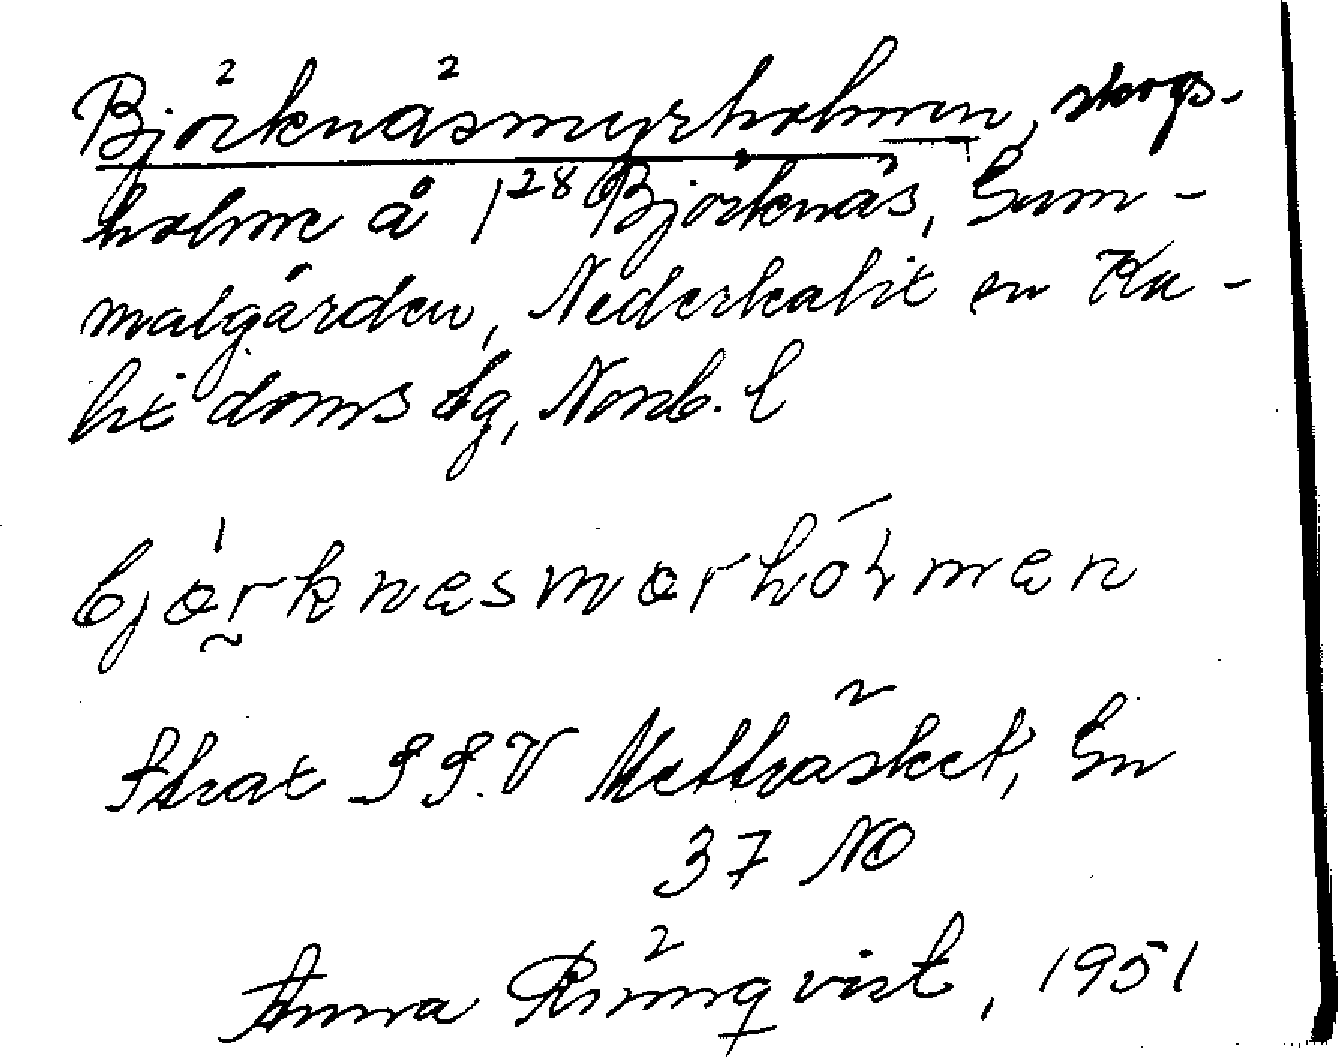 Björknäsmyrholmen, skogs-
holme å 1²⁸ Björknäs, Gam-
malgården, Nederkalix sn Ka-
lix doms lg, Norrb. l
bjœrknæsmœrhólmæn
Strax S S.V Mettträsket, Gn
37 NO
Anna Rönnqvist, 1951